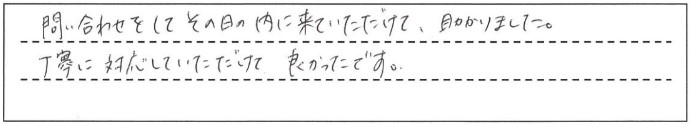 問い合わせをしてその日の内に来ていただけて、助かりました。
丁寧に対応していただけて良かったです。